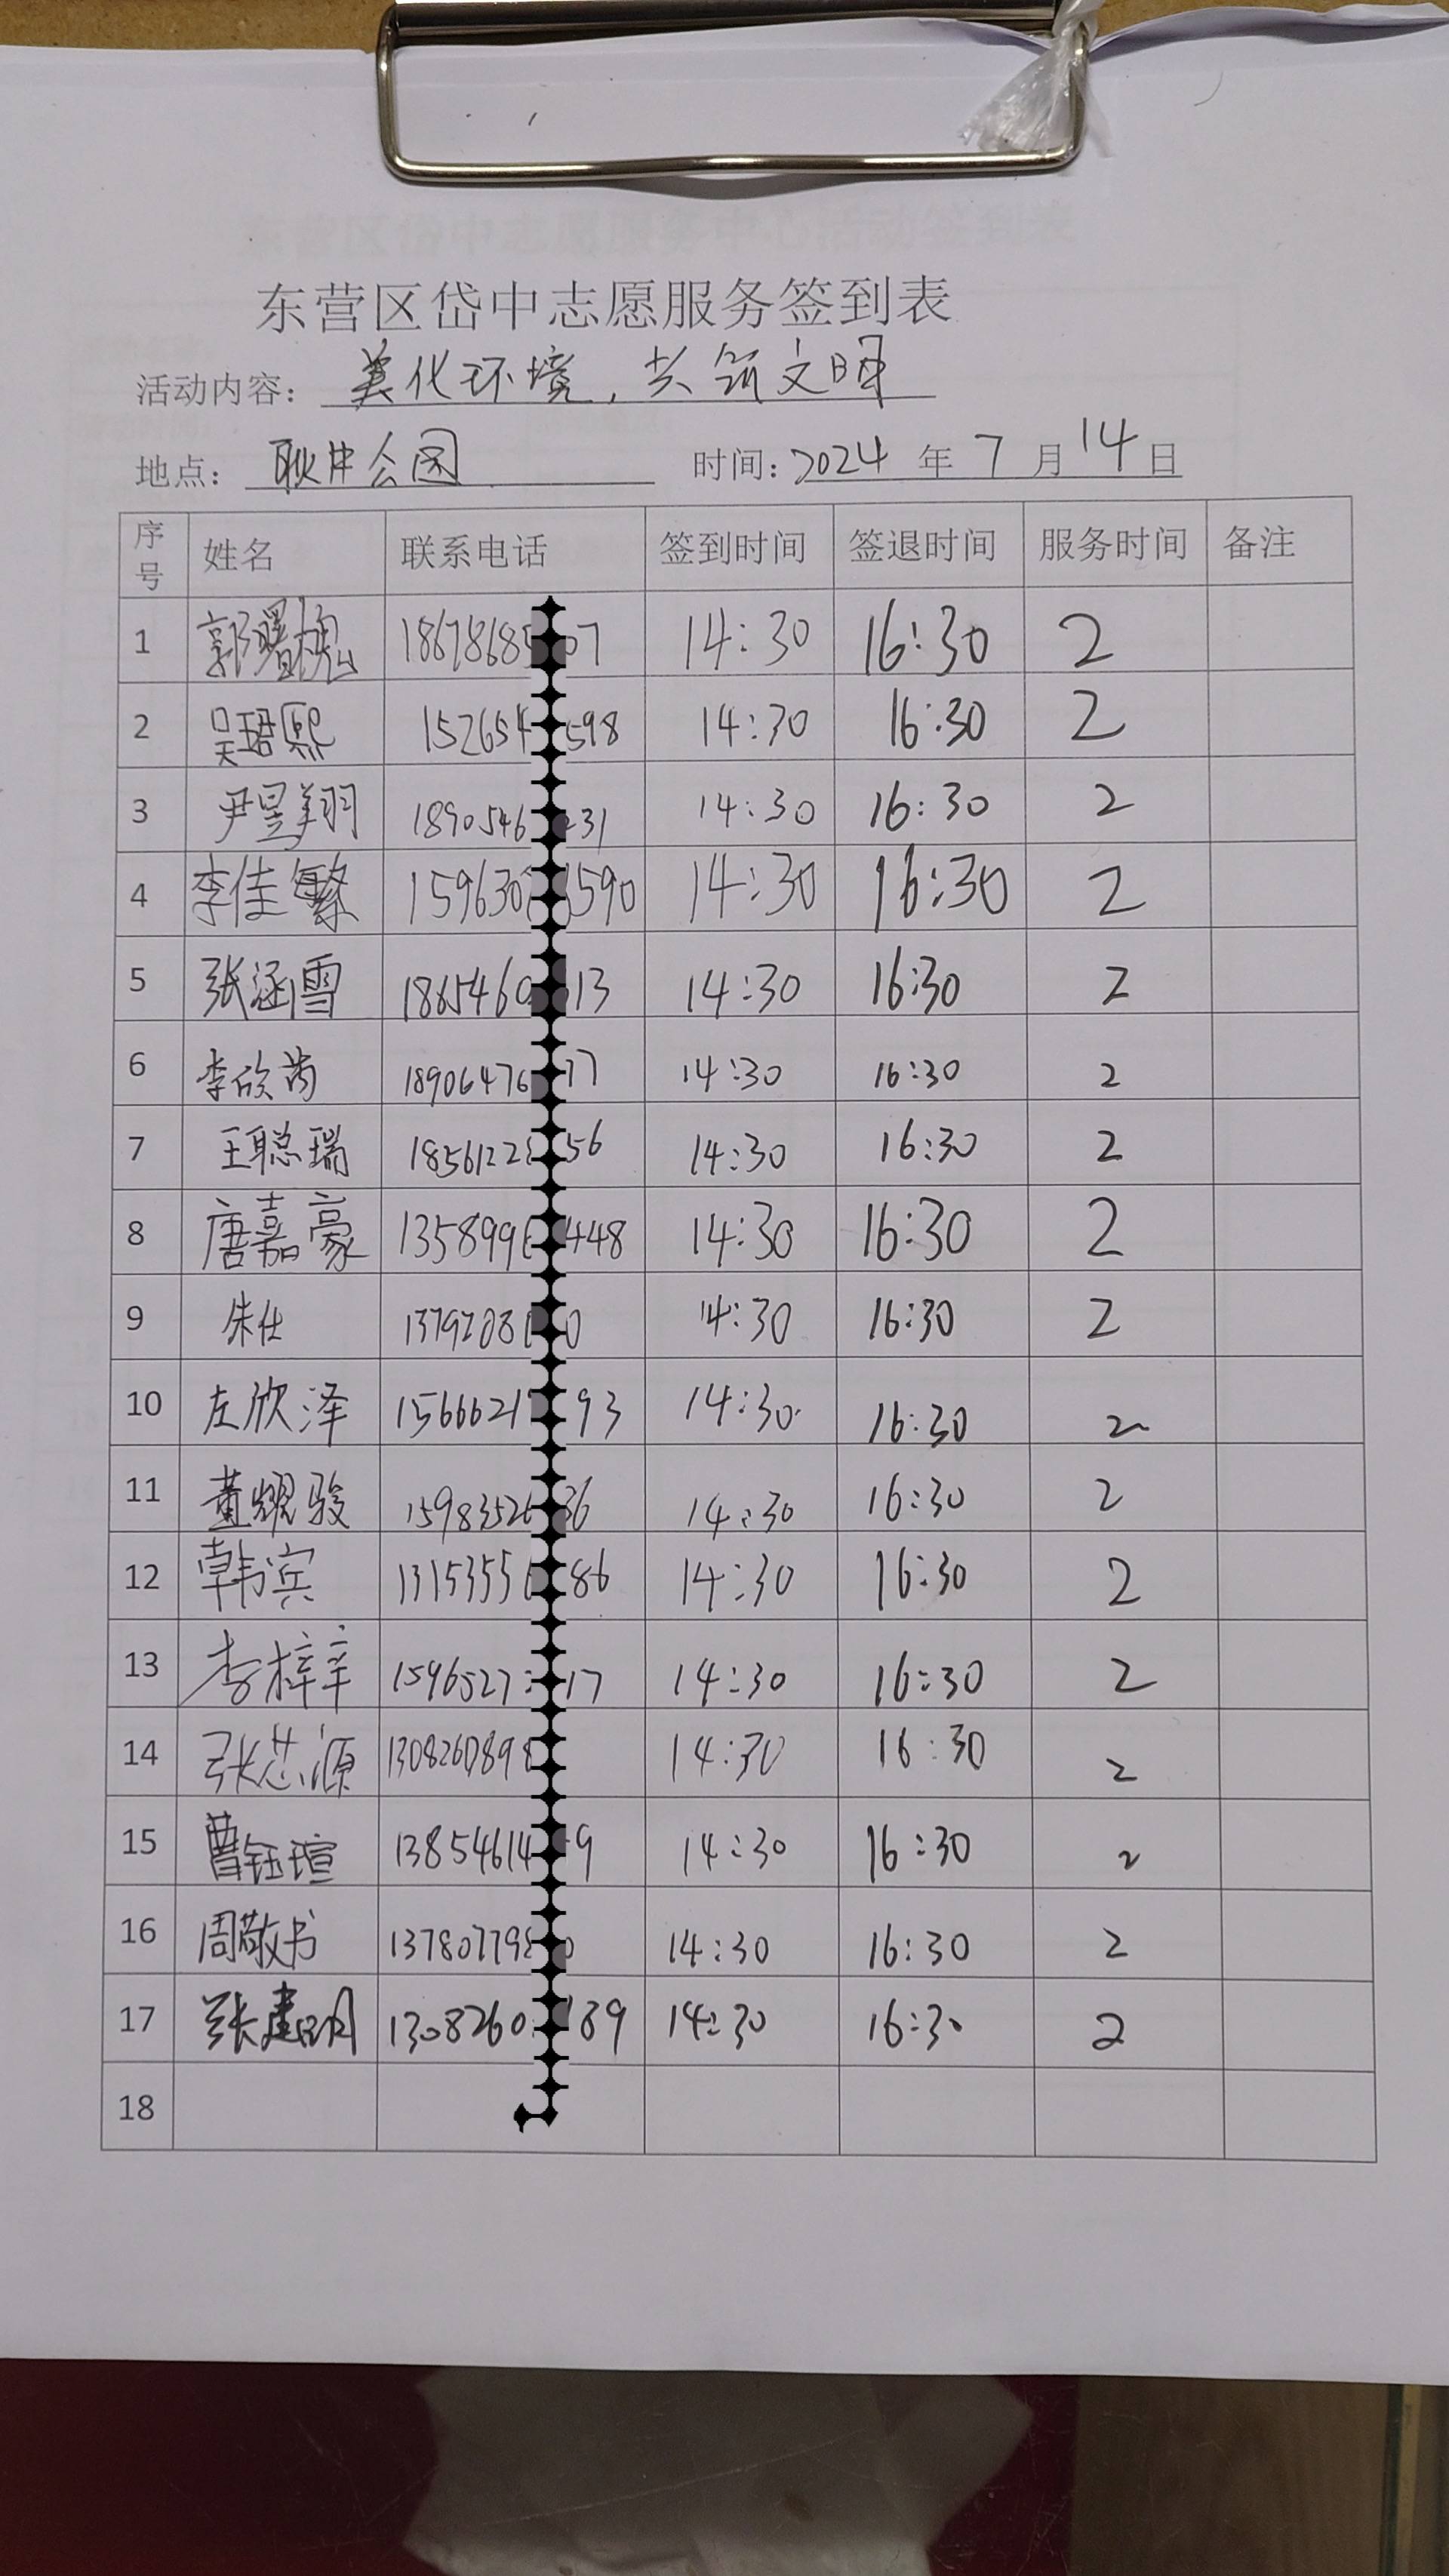 东营区岱中志愿服务签到表
活动内容： 美化环境，共筑文明
地点： 耿井公园 时间：2024 年 7 月 14 日
序号 姓名 联系电话 签到时间 签退时间 服务时间 备注
1 郭曙槐 1867868 07 14:30 16:30 2
2 吴珺熙 152654 598 14:30 16:30 2
3 尹昱翔 1890546 31 14:30 16:30 2
4 李佳繁 159630 590 14:30 16:30 2
5 张涵雪 1865460 13 14:30 16:30 2
6 李欣芮 18906476 77 14:30 16:30 2
7 王聪瑞 1856122 56 14:30 16:30 2
8 唐嘉豪 135899 448 14:30 16:30 2
9 朱仕 1379208 0 14:30 16:30 2
10 左欣泽 1566621 93 14:30 16:30 2
11 黄耀骏 1598352 36 14:30 16:30 2
12 韩宾 1315355 86 14:30 16:30 2
13 李梓辛 1596527 17 14:30 16:30 2
14 张芯源 130826089 14:30 16:30 2
15 曹钰瑄 13854614 9 14:30 16:30 2
16 周敬书 13780779 0 14:30 16:30 2
17 张建明 1308260 189 14:30 16:30 2
18